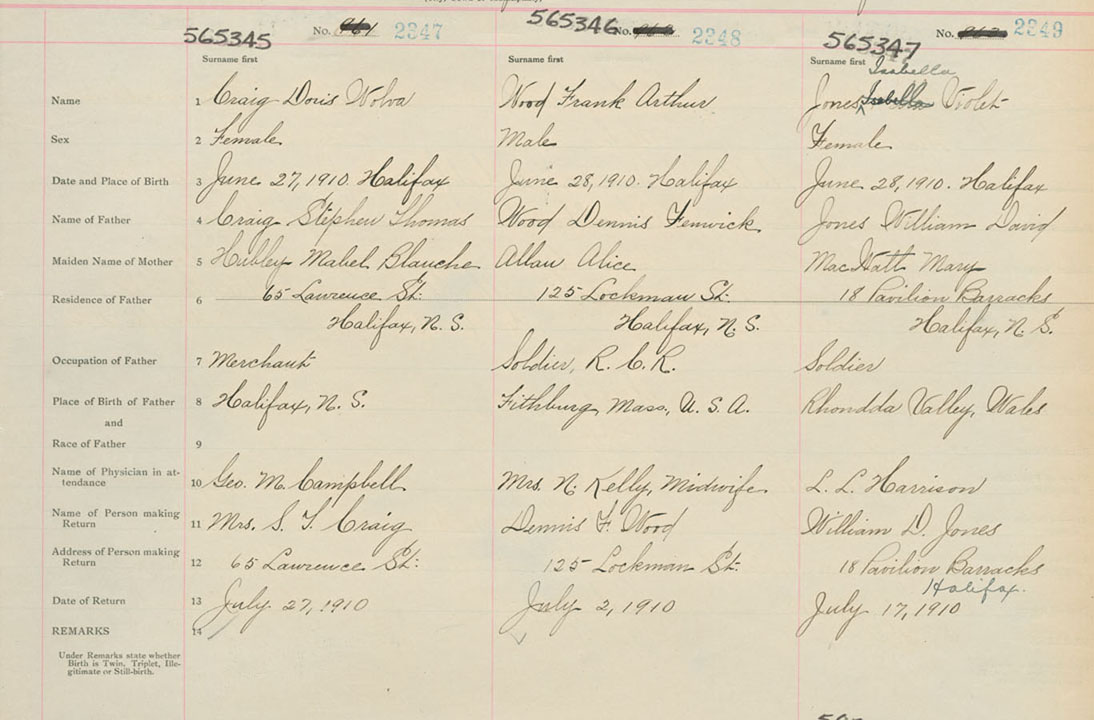 565345 No. 961 2347 565346 No. 2348 565347 No. 2349
Surname first Surname first Surname first
Isabella
Name 1 Craig Doris Wolva Wood Frank Arthur Jones Isabella Violet
Sex 2 Female Male Female
Date and Place of Birth 3 June 27, 1910. Halifax June 28, 1910. Halifax June 28, 1910. Halifax
Name of Father 4 Craig Stephen Thomas Wood Dennis Fenwick Jones William David
Maiden Name of Mother 5 Hubley Mabel Blanche Allan Alice MacWatt Mary
Residence of Father 6 65 Lawrence St. 125 Lockman St. 18 Pavilion Barracks
Halifax, N. S. Halifax, N. S. Halifax, N. S.
Occupation of Father 7 Merchant Soldier, R. C. R. Soldier
Place of Birth of Father 8 Halifax, N. S. Fithburg Mass, U. S. A. Rhondda Valley, Wales
and
Race of Father 9
Name of Physician in at-
tendance 10 Geo. M. Campbell Mrs. N. Kelly, Midwife L. L. Harrison
Name of Person making
Return 11 Mrs. S. T. Craig Dennis F. Wood William D. Jones
Address of Person making
Return 12 65 Lawrence St. 125 Lockman St. 18 Pavilion Barracks
Halifax.
Date of Return 13 July 27, 1910 July 2, 1910 July 17, 1910
REMARKS 14
Under Remarks state whether
Birth is Twin, Triplet, Ille-
gitimate or Still-birth.